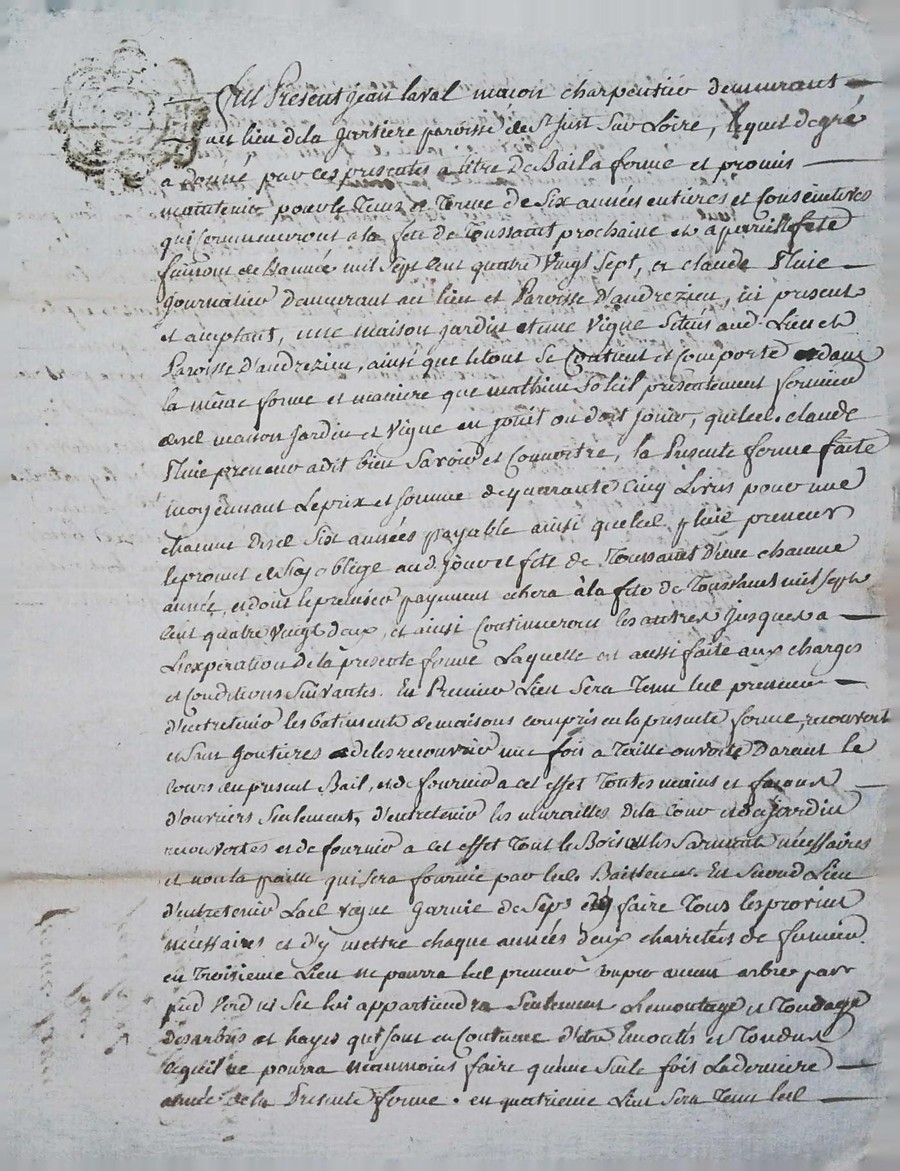 Fut Present jean laval macon charpentier demeurant
au lieu de la paroisse de St Just Sur Loire, lequel de gré
a donné par ces presentes a titre de Bail a ferme et promis
maintenir pour le tems et terme de Six années entieres et consecutives
qui commenceront a la fete de Toussaint prochaine et a pareille fete
finiront de L'année mil Sept Cent quatre Vingt Sept, a claude Pluie
journalier demeurant au lieu et Paroisse d'andrezieu, ici present
et acceptant, une maison jardin et une Vigne Situés aud. Lieu et
Paroisse d'andrezieu, ainsi que letout Se Contient et Comporte et dans
la même forme et maniere que mathieu Soleil présentement fermier
desd. maison jardin et Vigne en jouit ou doit jouir, que led. claude
Pluie preneur a dit bien Savoir et Connoitre, la Presente ferme faite
moyennant Le prix et Somme de quarante Cinq Livres pour une
chacune desd. Six années payable ainsi que led. pluie preneur
le promet et S'y oblige aud. jour et fete de Toussaint d'une chacune
année, et dont le premier payement echera à la fete de Toussaint mil Sept
Cent quatre Vingt deux, et ainsi Continueront les autres jusques a
L'expération de la présente ferme Laquelle est aussi faite aux charges
et Conditions Suivantes. En Premier Lieu Sera Tenu led. preneur
d'entretenir les batiments de maisons compris en la presente ferme, recouvert
et Sans goutieres et de les recouvrir une fois a Taille ouverte Durant le
Cours du present Bail, et de fournir a cet effet Toutes mains et facons
d'ouvriers Seulement, d'entretenir les murailles de la Cour et du jardin
recouvertes et de fournir a cet effet Tout le Bois et les Sarments nécessaires
et non la paille qui Sera fournie par led. Bailleur. En Second Lieu
d'entretenir Lad. vigne garnie de Seps et y faire Tous les provins
nécessaires et d'y mettre chaque années deux charretées de fumier.
en Troisieme Lieu ne pourra led. preneur couper aucun arbre par
pied Verd ni Sec lui appartiendra Seulement L'emontage et Tondage
des arbres et hayes qui Sont en Coutume d'etre Emontés et Tondus
Lequel ne pourra neanmoins faire qu'une Seule fois La derniere
année de la Présente ferme. en quatrieme Lieu Sera Tenu led.